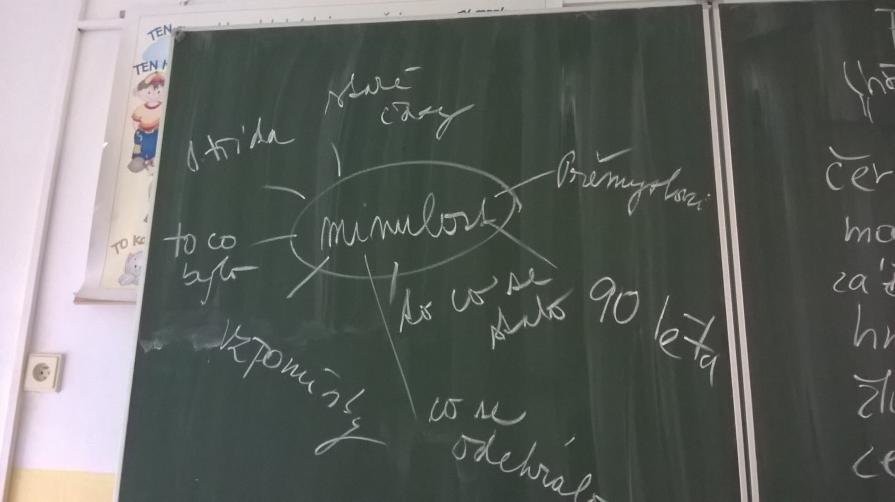 TEN
TEN
TO
staré
časy
1. třída
Přemyslovci
minulost
to co
bylo
to co se
stalo
90 léta
vzpomínky
co se
odehrálo
čer
ma
hr